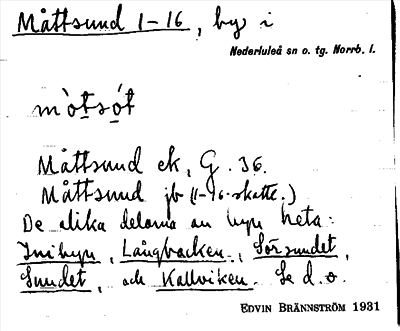 Måttsund 1-16, by i
Nederluleå sn o. tg. Norrb. l.
mòtsót
Måttsund ek, G. 36.
Måttsund jb (1-16 skatte.)
De olika delarna av byn heta:
Inibyn, Långbacken, Sörsundet,
Sundet, och Kallviken. Se d.o.
EDVIN BRÄNNSTRÖM 1931